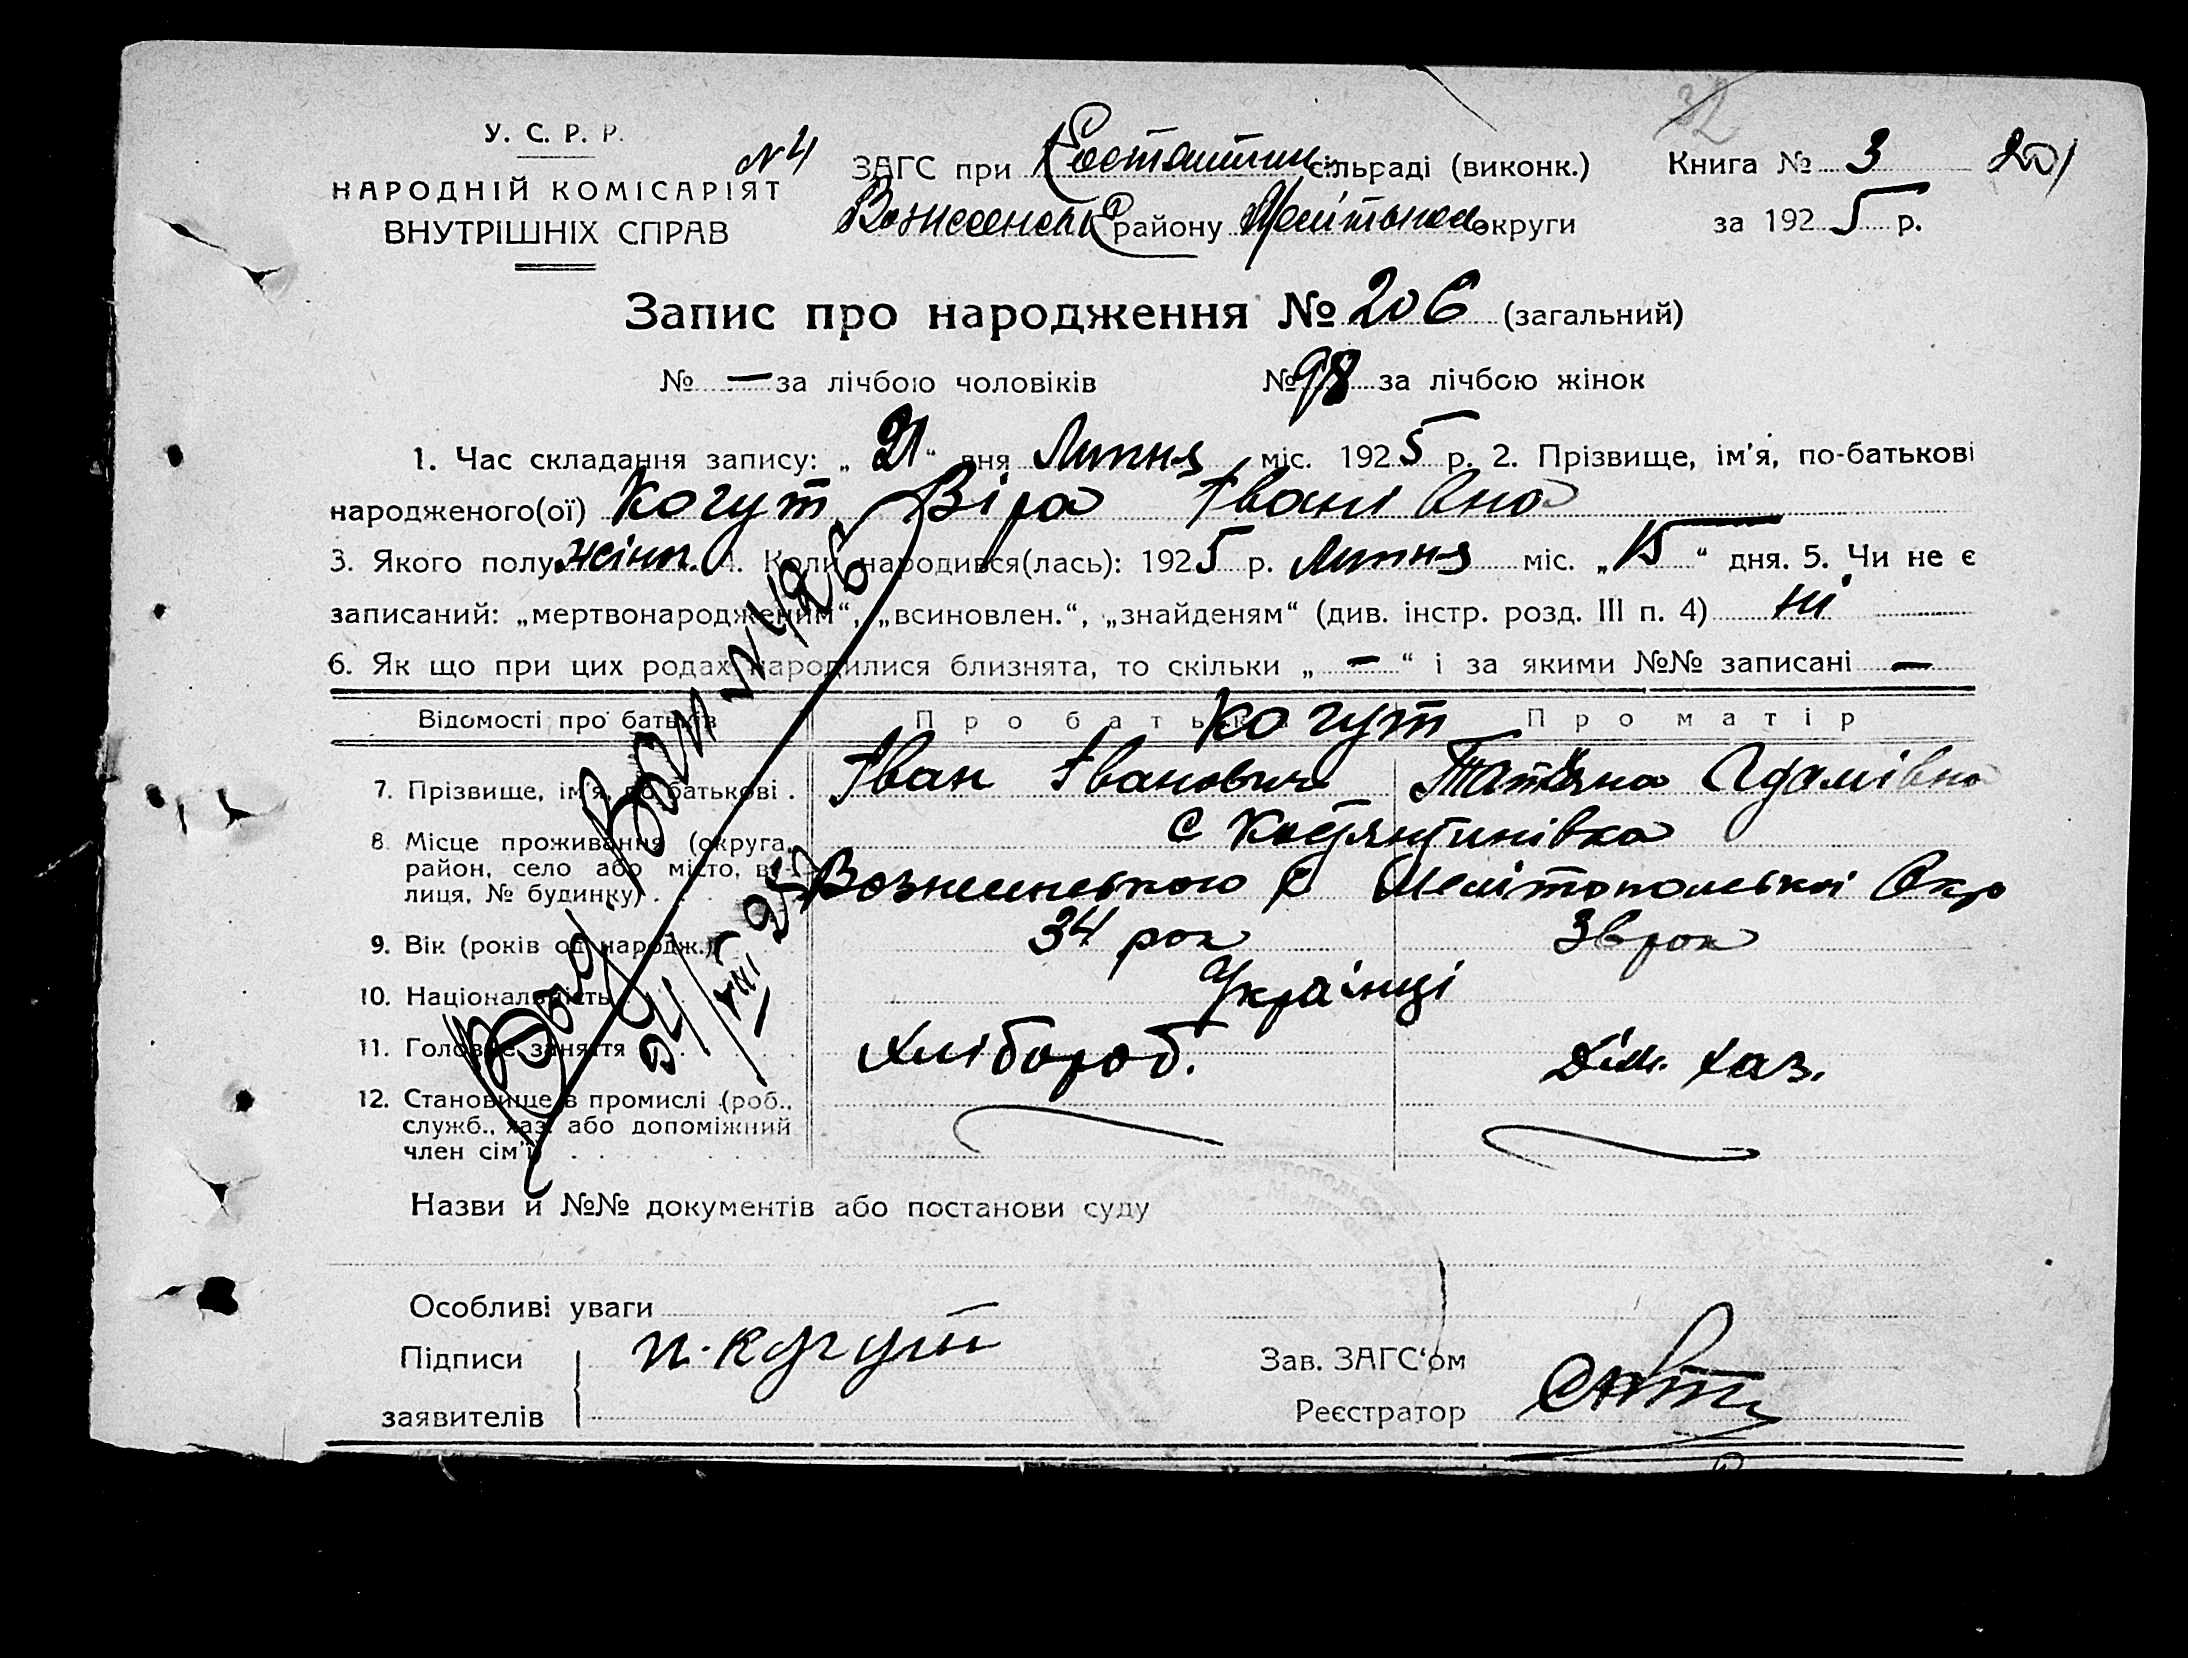 32
У. С. Р. Р.
НАРОДНІЙ КОМІСАРІЯТ
ВНУТРІШНІХ СПРАВ
№ 4 ЗАГС при сільраді (виконк.) Книга № 3 201
району округи за 1925 р.
Запис про народження № 206 (загальний)
№ — за лічбою чоловіків № 98 за лічбою жінок
1. Час складання запису: „21“ дня Липня міс. 1925 р. 2. Прізвище, ім'я, по-батькові
народженого(ої) Когут Віра Іванівна
3. Якого полу жіноч. 4. Коли народився(лась): 1925 р. Липня міс. „15“ дня. 5. Чи не є
записаний: „мертвонародженим“, „всиновлен.“, „знайденям“ (див. інстр. розд. III п. 4) ні
6. Як що при цих родах народилися близнята, то скільки „—“ і за якими №№ записані —
Відомості про батьків Про батька Когут Про матір
7. Прізвище, ім'я, по батькові . Іван Іванович Татьяна Адамівна
8. Місце проживання (округа, район, село або місто, вулиця, № будинку) . с
Вознесенського р Мелітопольської Окр
9. Вік (років од народж.) 34 рок рок
10. Національність Українці
11. Головне заняття хлібороб. Дом. хаз.
12. Становище в промислі (роб.,
служб., хаз. або допоміжний
член сім'ї)
Вид. Вип №
Назви й №№ документів або постанови суду
Особливі уваги
Підписи Когут Зав. ЗАГС'ом
заявителів Реєстратор